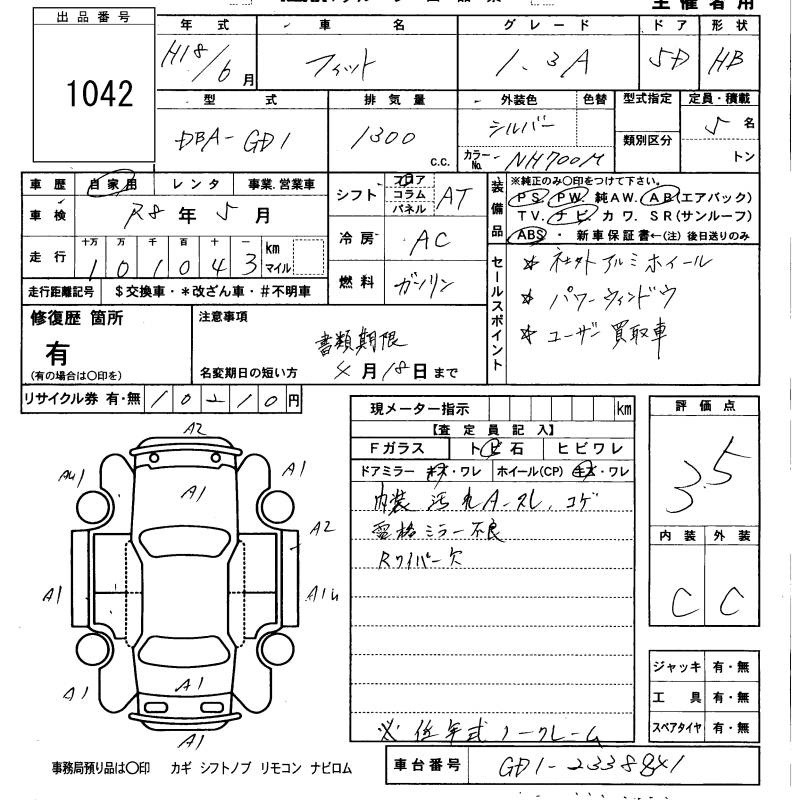 主催者用
出品番号
1042
年式 車名 グレード ドア 形状
H18/6月 フィット 1.3A 5D HB
型式 排気量 外装色 色替 型式指定 定員・積載
DBA-GD1 1300 c.c. シルバー 類別区分 5名
カラーNo. NH700M トン
車歴 自家用 レンタ 事業.営業車
車検 R8年5月
走行 十万 万 千 百 十 一 km マイル
101043
走行距離記号 $交換車・*改ざん車・#不明車
シフト フロア コラム パネル AT
冷房 AC
燃料 ガソリン
装備品 ※純正のみ〇印をつけて下さい。
PS. PW. 純AW. AB(エアバック)
TV. ナビ カワ. SR(サンルーフ)
ABS ・ 新車保証書←(注)後日送りのみ
セールスポイント
☆ 社外アルミホイール
☆ パワーウィンドウ
☆ ユーザー買取車
修復歴 箇所
有
(有の場合は〇印を)
注意事項
書類期限
名変期日の短い方 4月18日まで
リサイクル券 有・無 10210円
現メーター指示 km
【査定員記入】
Fガラス トビ石 ヒビワレ
ドアミラー キズ・ワレ ホイール(CP) キズ・ワレ
内装 汚れ A-スレ、コゲ
電格ミラー不良
Rワイパー欠
※ 低年式ノークレーム
評価点
3.5
内装 外装
C C
A2
A1
A1
A2
A1
A1
A1
A1
A1
A1
ジャッキ 有・無
工具 有・無
スペアタイヤ 有・無
事務局預り品は〇印 カギ シフトノブ リモコン ナビロム
車台番号 GD1-2338841